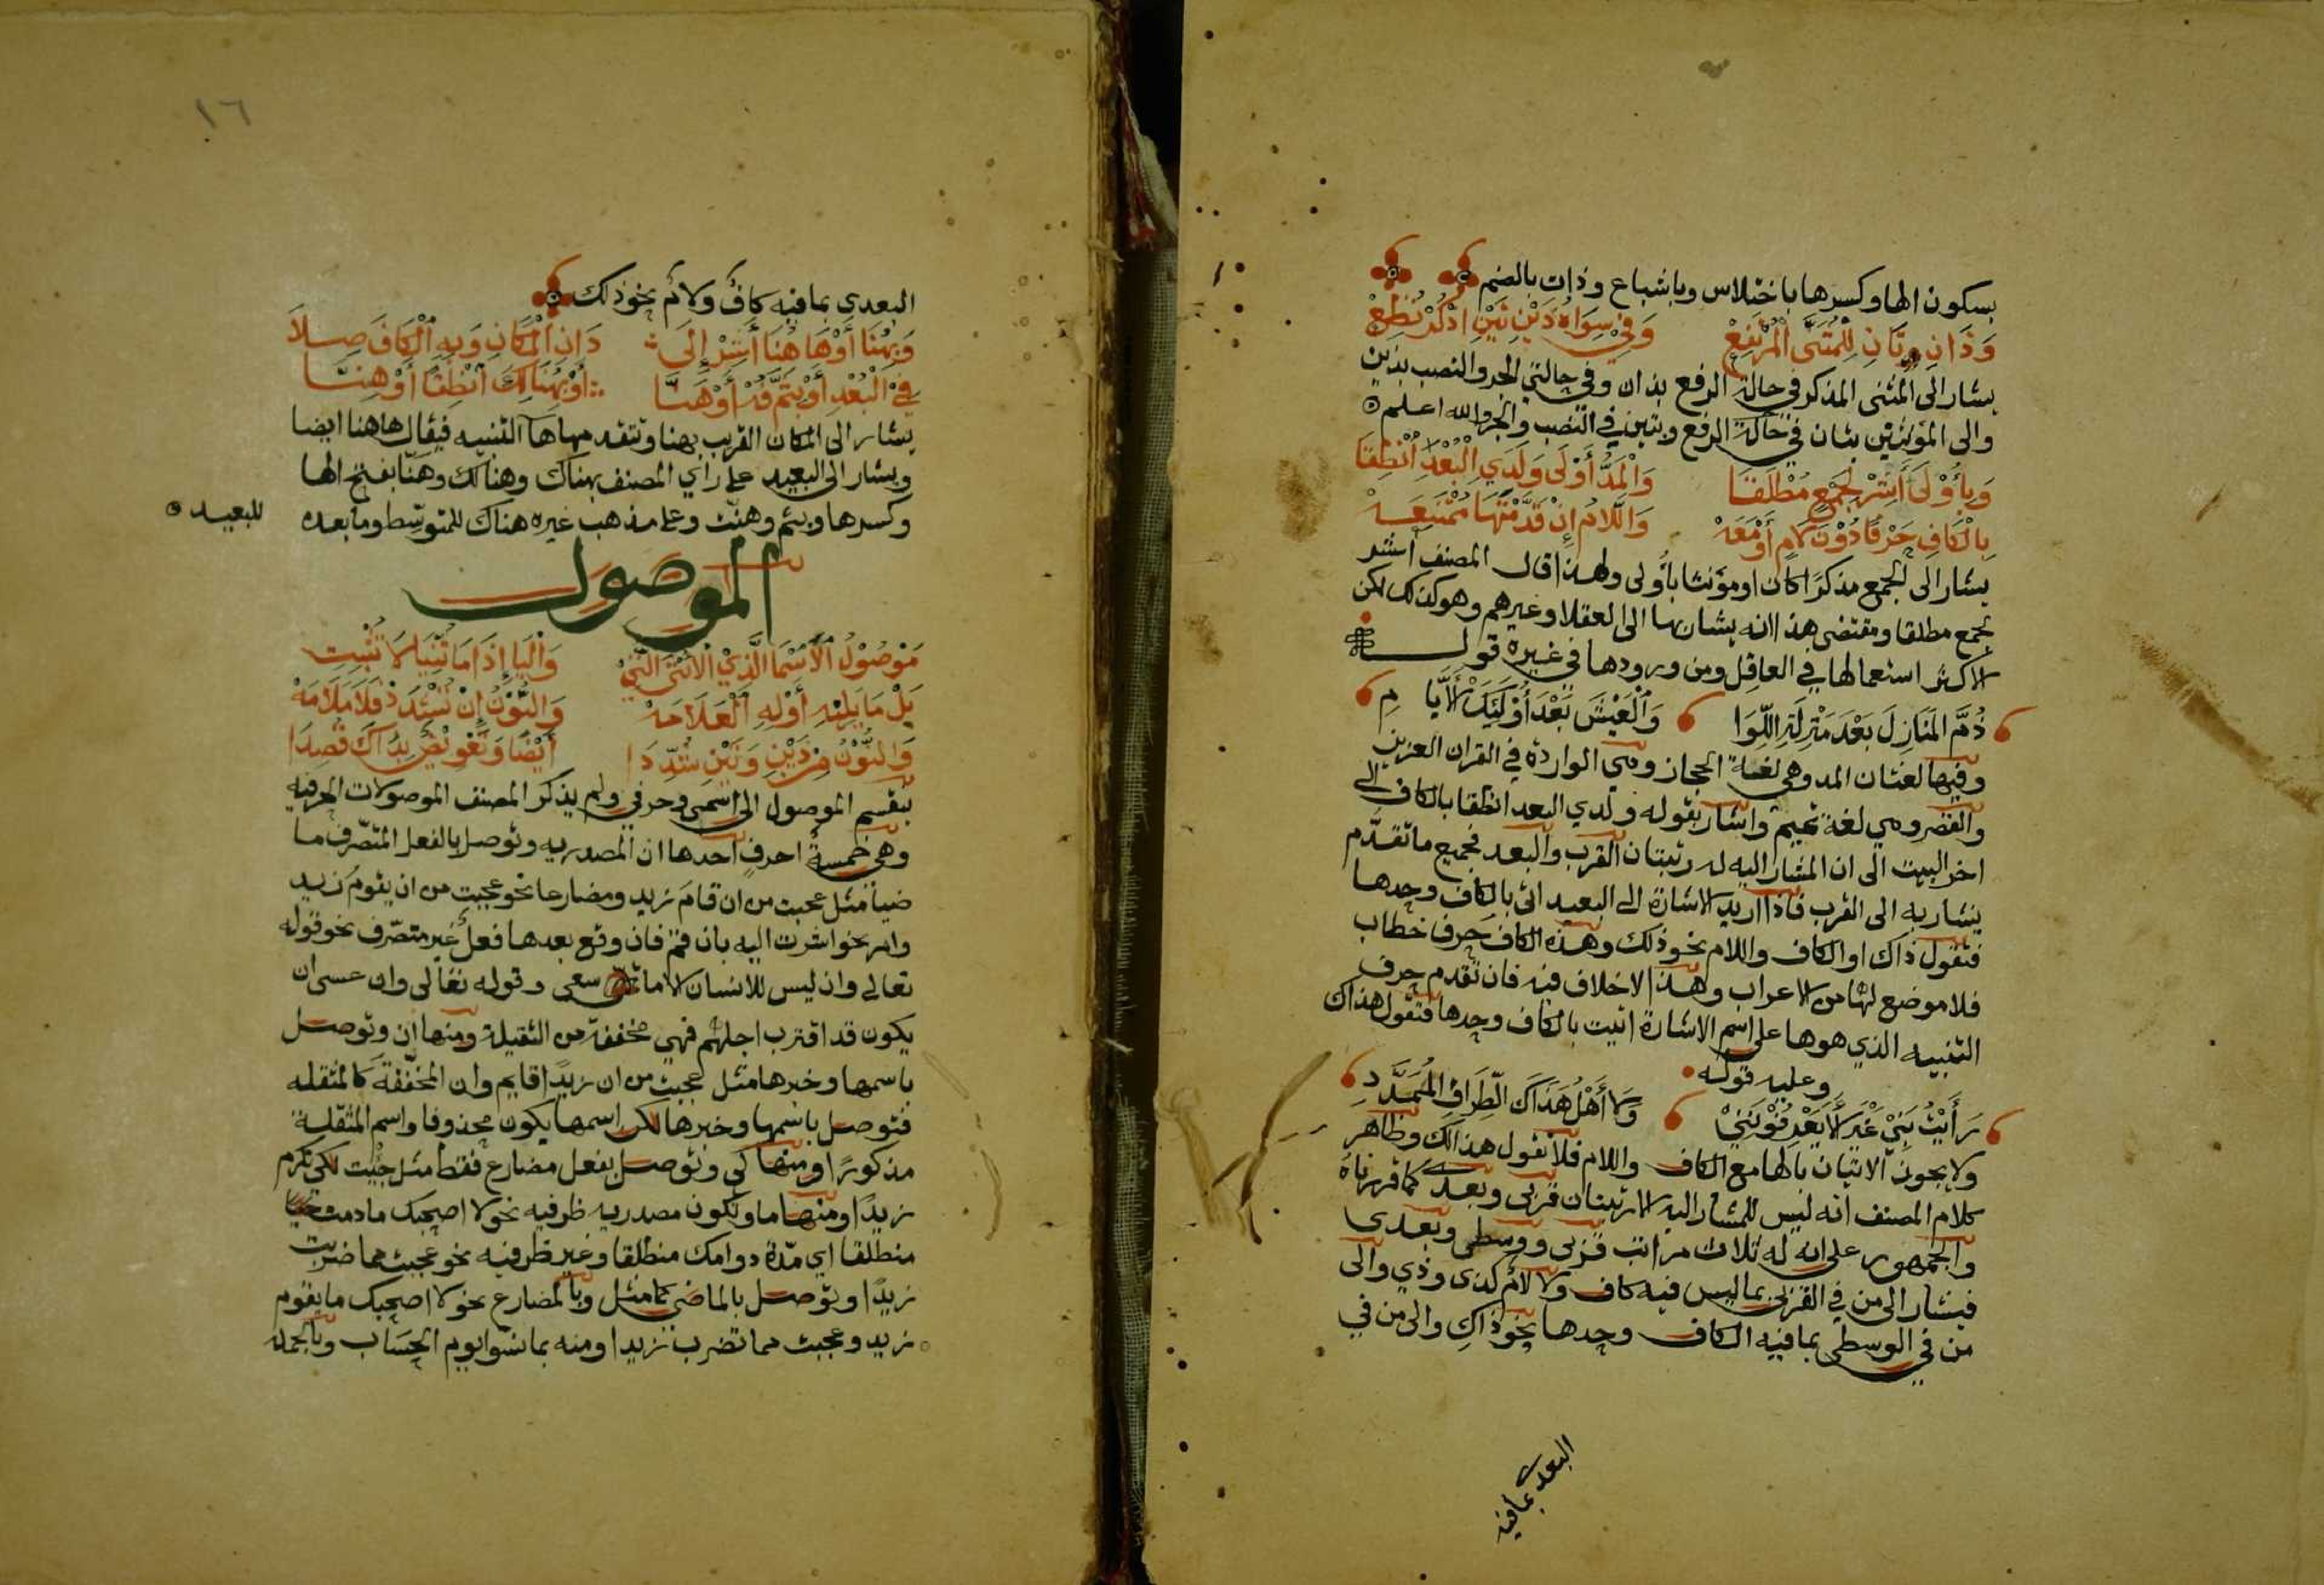 بسكون الها وكسرها باختلاس وباشباع وذات بالضم
وَذَانِ وتَانِ لِلْمُثَنَّى الْمُرْتَفِعْ وَفِيْ سِوَاهُ ذَيْنِ تَيْنِ اذْكُرْ تُطِعْ
يشار الى المثنى المذكر في حالة الرفع بذان وفي حالتي الجر والنصب بذين
والى المؤنثين بتان في حالة الرفع وبتين في النصب والجر والله اعلم
وَبِأُوْلَى أَشِرْ لِجَمْعٍ مُطْلَقَا وَالْمَدُّ أَوْلَى وَلَدِي الْبُعْدِ انْطِقَا
بِالْكَافِ حَرْفًا دُوْنَ لَامٍ أَوْ مَعَهْ وَاللَّامُ إِنْ قَدَّمْتَ هَا مُمْتَنِعَهْ
يشار الى الجمع مذكرًا كان او مؤنثا باُولى ولهذا قال المصنف اشر
لجمع مطلقا ومقتضى هذا انه يشار بها الى العقلا وغيرهم وهو كذلك لكن
الاكثر استعمالها في العاقل ومن ورودها في غيره قولـــه
ذُمَّ الْمَنَازِلَ بَعْدَ مَنْزِلَةِ اللِّوَا وَالْعَيْشَ بَعْدَ أُوْلَئِكَ الْأَيَّامِ
وفيها لغتان المد وهي لغة الحجاز وهي الواردة في القران العزيز
والقصر وهي لغة تميم واشار بقوله ولدي البعد انطقا بالكاف الى
اخر البيت الى ان المشار اليه له رتبتان القرب والبعد فجميع ما تقدّم
يشار به الى القرب فاذا اريد الاشارة الى البعيد اتى بالكاف وحدها
فتقول ذاك او الكاف واللام نحو ذلك وهذه الكاف حرف خطاب
فلا موضع لها من الاعراب وهذا لا خلاف فيه فان تقدم حرف
التنبيه الذي هو ها على اسم الاشارة اتيت بالكاف وحدها فتقول هذاك
وعليه قوله
رَأَيْتُ بَنِيْ غَبْرَا لَا يَعْرِفُوْنَنِيْ وَلَا أَهْلُ هَذَاكَ الطِّرَافِ الْمُمَدَّدِ
ولا يجوز الاتيان بالها مع الكاف واللام فلا تقول هذالك وظاهر
كلام المصنف انه ليس للمشار اليه الا رتبتان قربى وبعدى كما قررناه
والجمهور على انه له ثلاث مراتب قربى ووسطى وبعدى
فيشار الى من في القربى بما ليس فيه كاف ولا لام كذى وذي والى
من في الوسطى بما فيه الكاف وحدها نحو ذاك والى من في
البعدى بما فيه
١٦
البعدى بما فيه كافٌ ولامٌ نحو ذلك
وَبِهُنَا أَوْ هَا هُنَا أَشِرْ إِلَى دَانِ الْمَكَانِ وَبِهِ الْكَافَ صِلَا
فِي الْبُعْدِ أَوْ بِثَمَّ فُهْ أَوْ هَنَّا أَوْ بِهُنَالِكَ انْطِقًا أَوْ هِنَّا
يشار الى المكان القريب بهنا وتتقدمها ها التنبيه فيقال هاهنا ايضا
ويشار الى البعيد على راي المصنف بهناك وهنالك وهَنّا بفتح الها
وكسرها وبثم وهنّت وعلى مذهب غيره هناك للمتوسّط وما بعده للبعيد
الموصول
مَوْصُوْلُ الْأَسْمَا الَّذِيْ الْأُنْثَى الَّتِيْ وَالْيَا إِذَا مَا ثُنِّيَا لَا تُثْبِتِ
بَلْ مَا يَلِيْهِ أَوْلِهِ الْعَلَامَهْ وَالنُّوْنُ إِنْ تُشْدَدْ فَلَا مَلَامَهْ
وَالنُّوْنُ مِنْ ذَيْنِ وَتَيْنِ شُدِّدَا أَيْضًا وَتَعْوِيْضٌ بِذَاكَ قُصِدَا
ينقسم الموصول الى اسمي وحرفي ولم يذكر المصنف الموصولات الحرفيه
وهي خمسة احرفٍ احدها ان المصدريه وتوصل بالفعل المتصّرف ما
ضياً مثل عجبت من ان قامَ زيد ومضارعا نحو عجبت من ان يقومَ زيد
وامر نحو اشرت اليه بان قم فان وقع بعدها فعلٌ غير متصّرف نحو قوله
تعالى وان ليس للانسان الا ما سعى وقوله تعالى وان عسى ان
يكون قد اقترب اجلهم فهي مخففة من الثقيلة ومنها انّ وتوصل
باسمها وخبرها مثل عجبت من ان زيدًا قايم وان المخفّفة كالمثقله
فتوصل باسمها وخبرها لكن اسمها يكون محذوفا واسم المثقّلة
مذكورًا ومنها كي وتوصل بفعل مضارع فقط مثل جئت لكي تكرم
زيدًا ومنها ما وتكون مصدريه ظرفيه نحو لا اصحبك ما دمت
منطلقا اي مدّة دوامك منطلقا وغير ظرفيه نحو عجبت مما ضربت
زيدًا وتوصل بالماضي كما مثل وبالمضارع نحو لا اصحبك ما يقوم
زيد وعجبت مما تضرب زيدا ومنه بما نسوا يوم الحسَاب وبالجمله